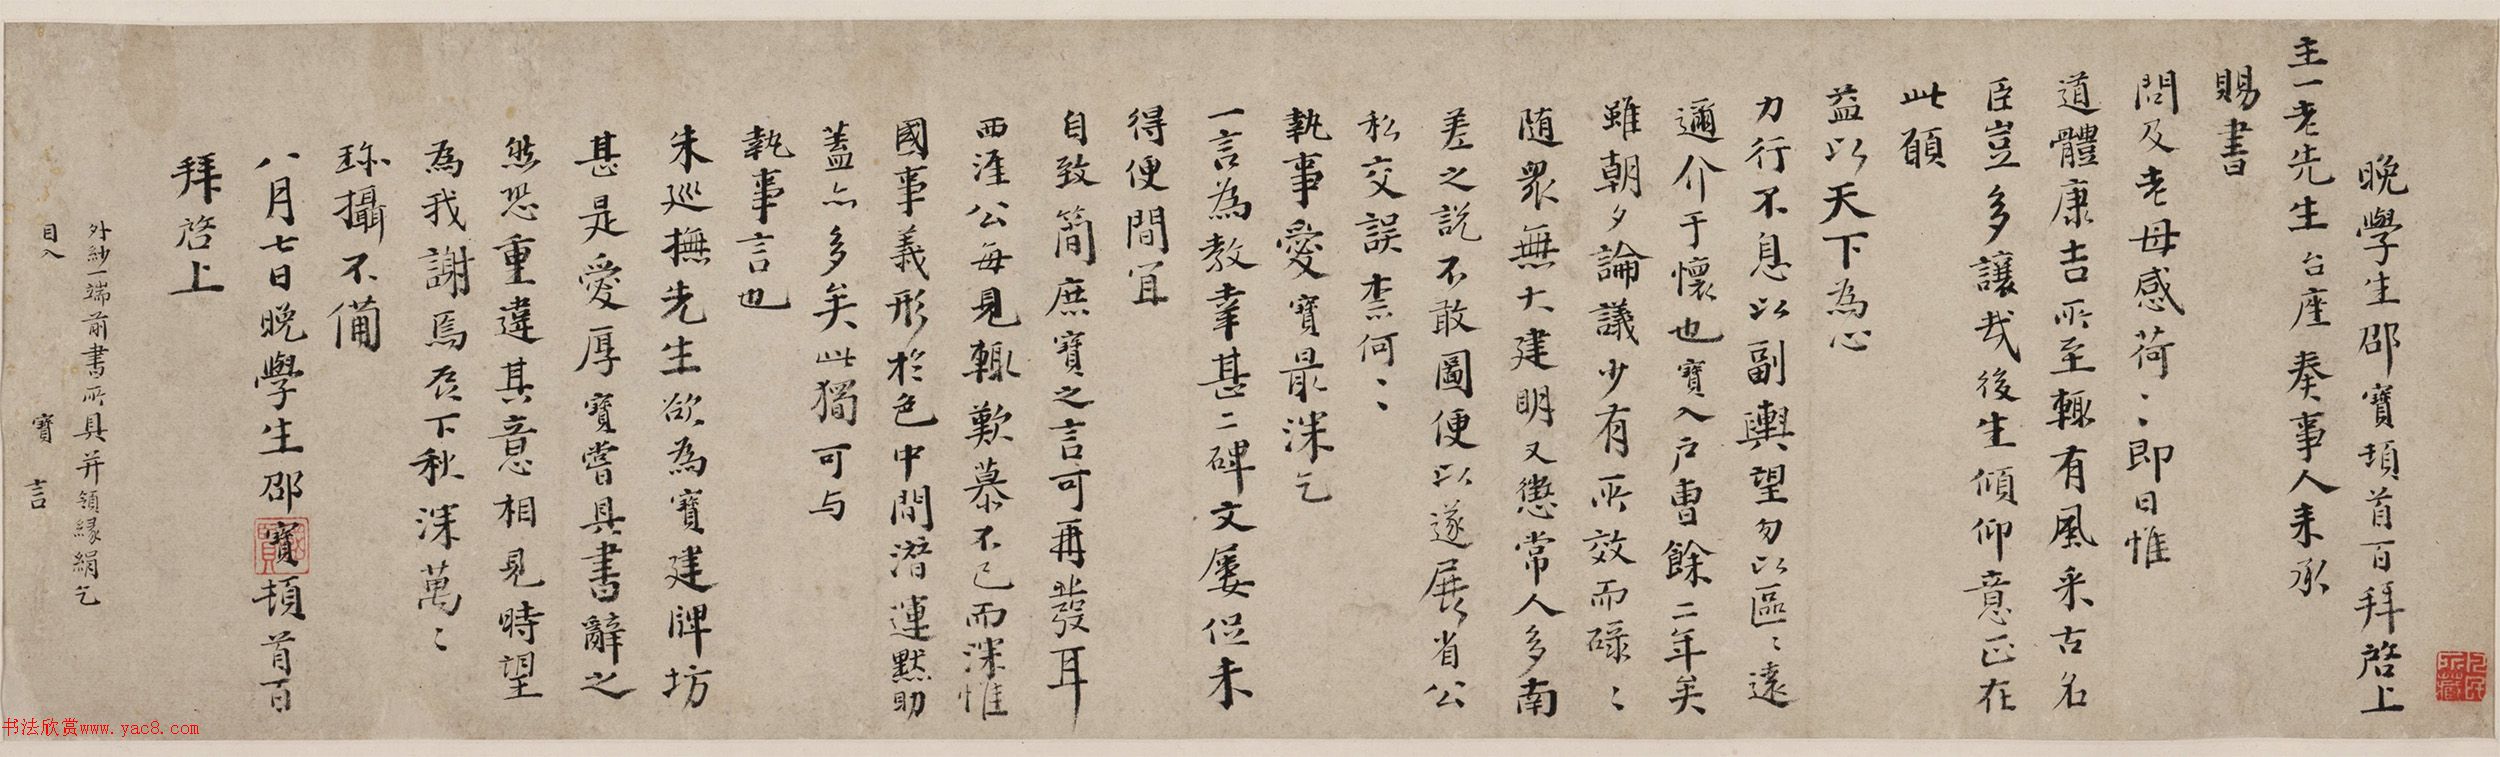 晚學生邵寶頓首百拜啓上
主一老先生台座奏事人来承
賜書
問及老母感荷〻即日惟
道體康吉所至輙有風采古名
臣豈多讓哉後生傾仰意正在
此願
益以天下為心
力行不息以副輿望勿以區〻遠
邇介于懷也寶入戶曹餘二年矣
雖朝夕論議少有所效而碌〻
随衆無大建明又懲常人多南
差之説不敢圖便以遂展省公
私交誤柰何〻
執事愛寶最深乞
一言為教幸甚二碑文屡促未
得便間宜
自致簡庶寶之言可再發耳
西涯公每見輙歎慕不已而深惟
國事義形於色中間潛運默助
蓋亦多矣此獨可与
執事言也
朱巡撫先生欲為寶建牌坊
甚是愛厚寶嘗具書辭之
然恐重違其意相見時望
為我謝焉  下秋深萬〻
珎攝不備
八月七日晚學生邵寶頓首百
拜啓上
外紗一端前書所具并領緣絹乞
目入
寶 言
书法欣赏www.yac8.com